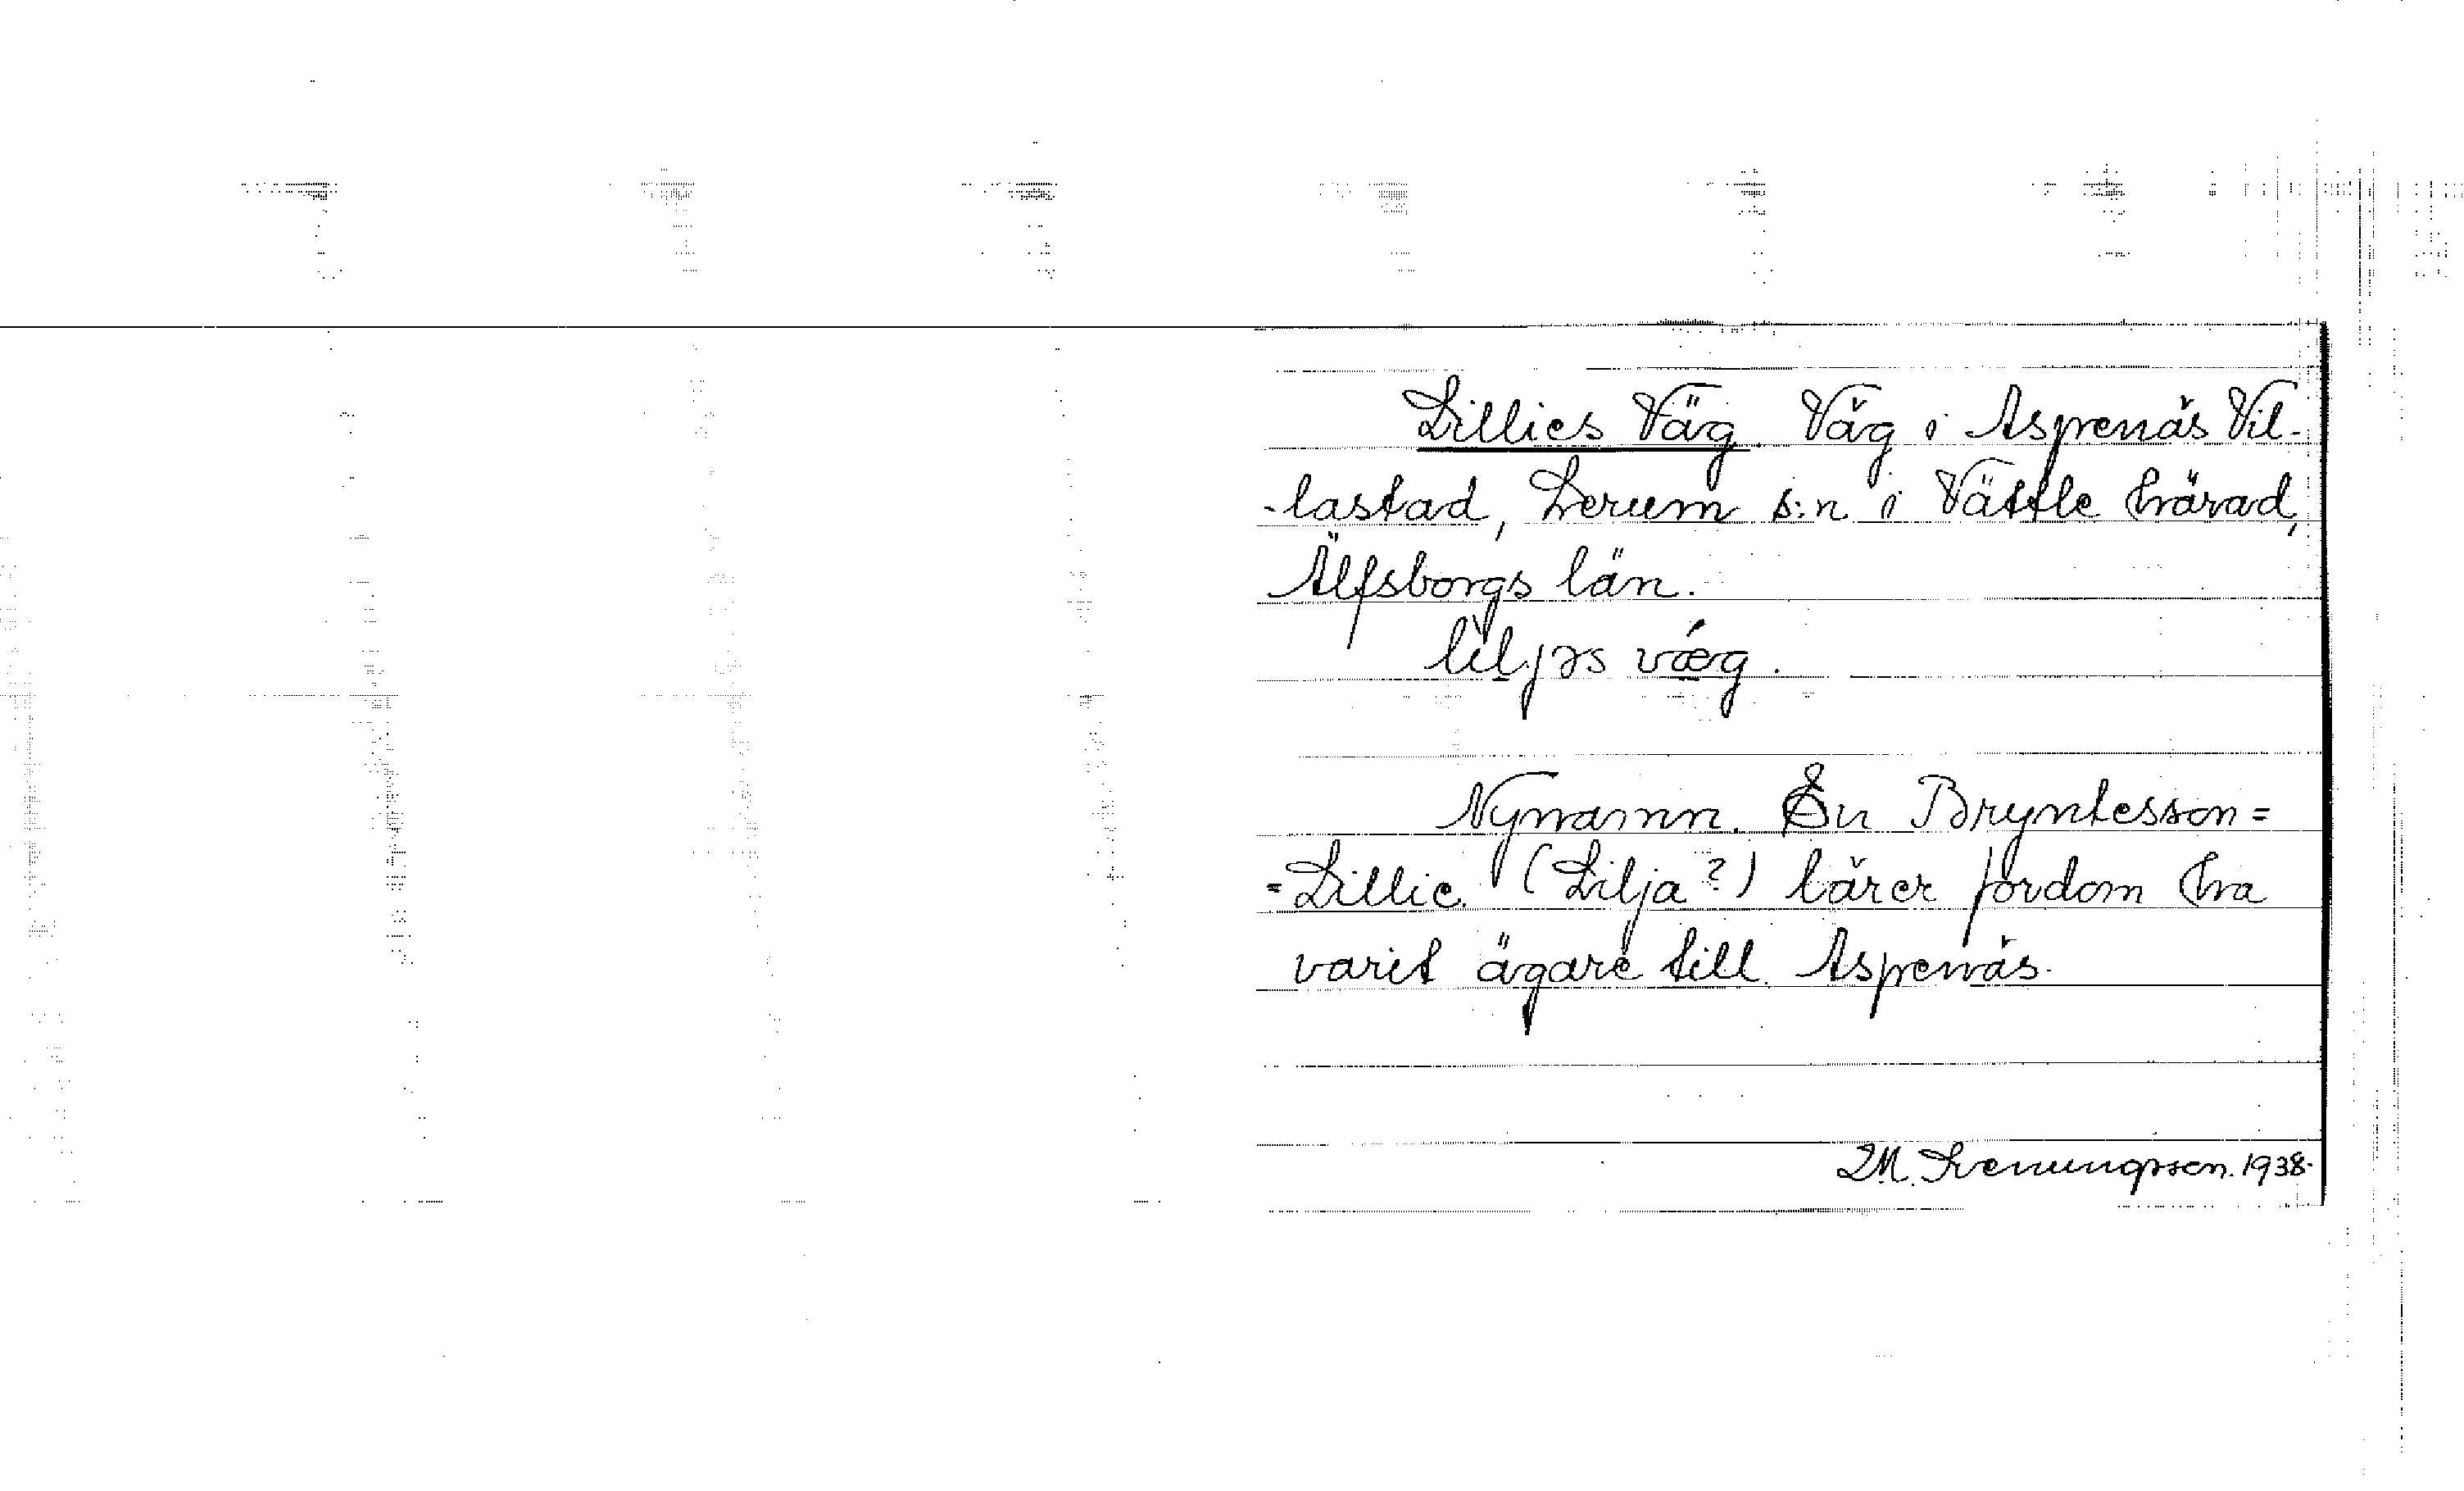 Lillies Väg. Väg i Aspenäs Vil-
-lastad, Lerum s:n i Vättle härad,
Älfsborgs län.
lìljɘs vǽg.
Nynamn. En Bryntesson=
=Lillie (Lilja?) lärer fordom ha
varit ägare till Aspenäs.
1938.